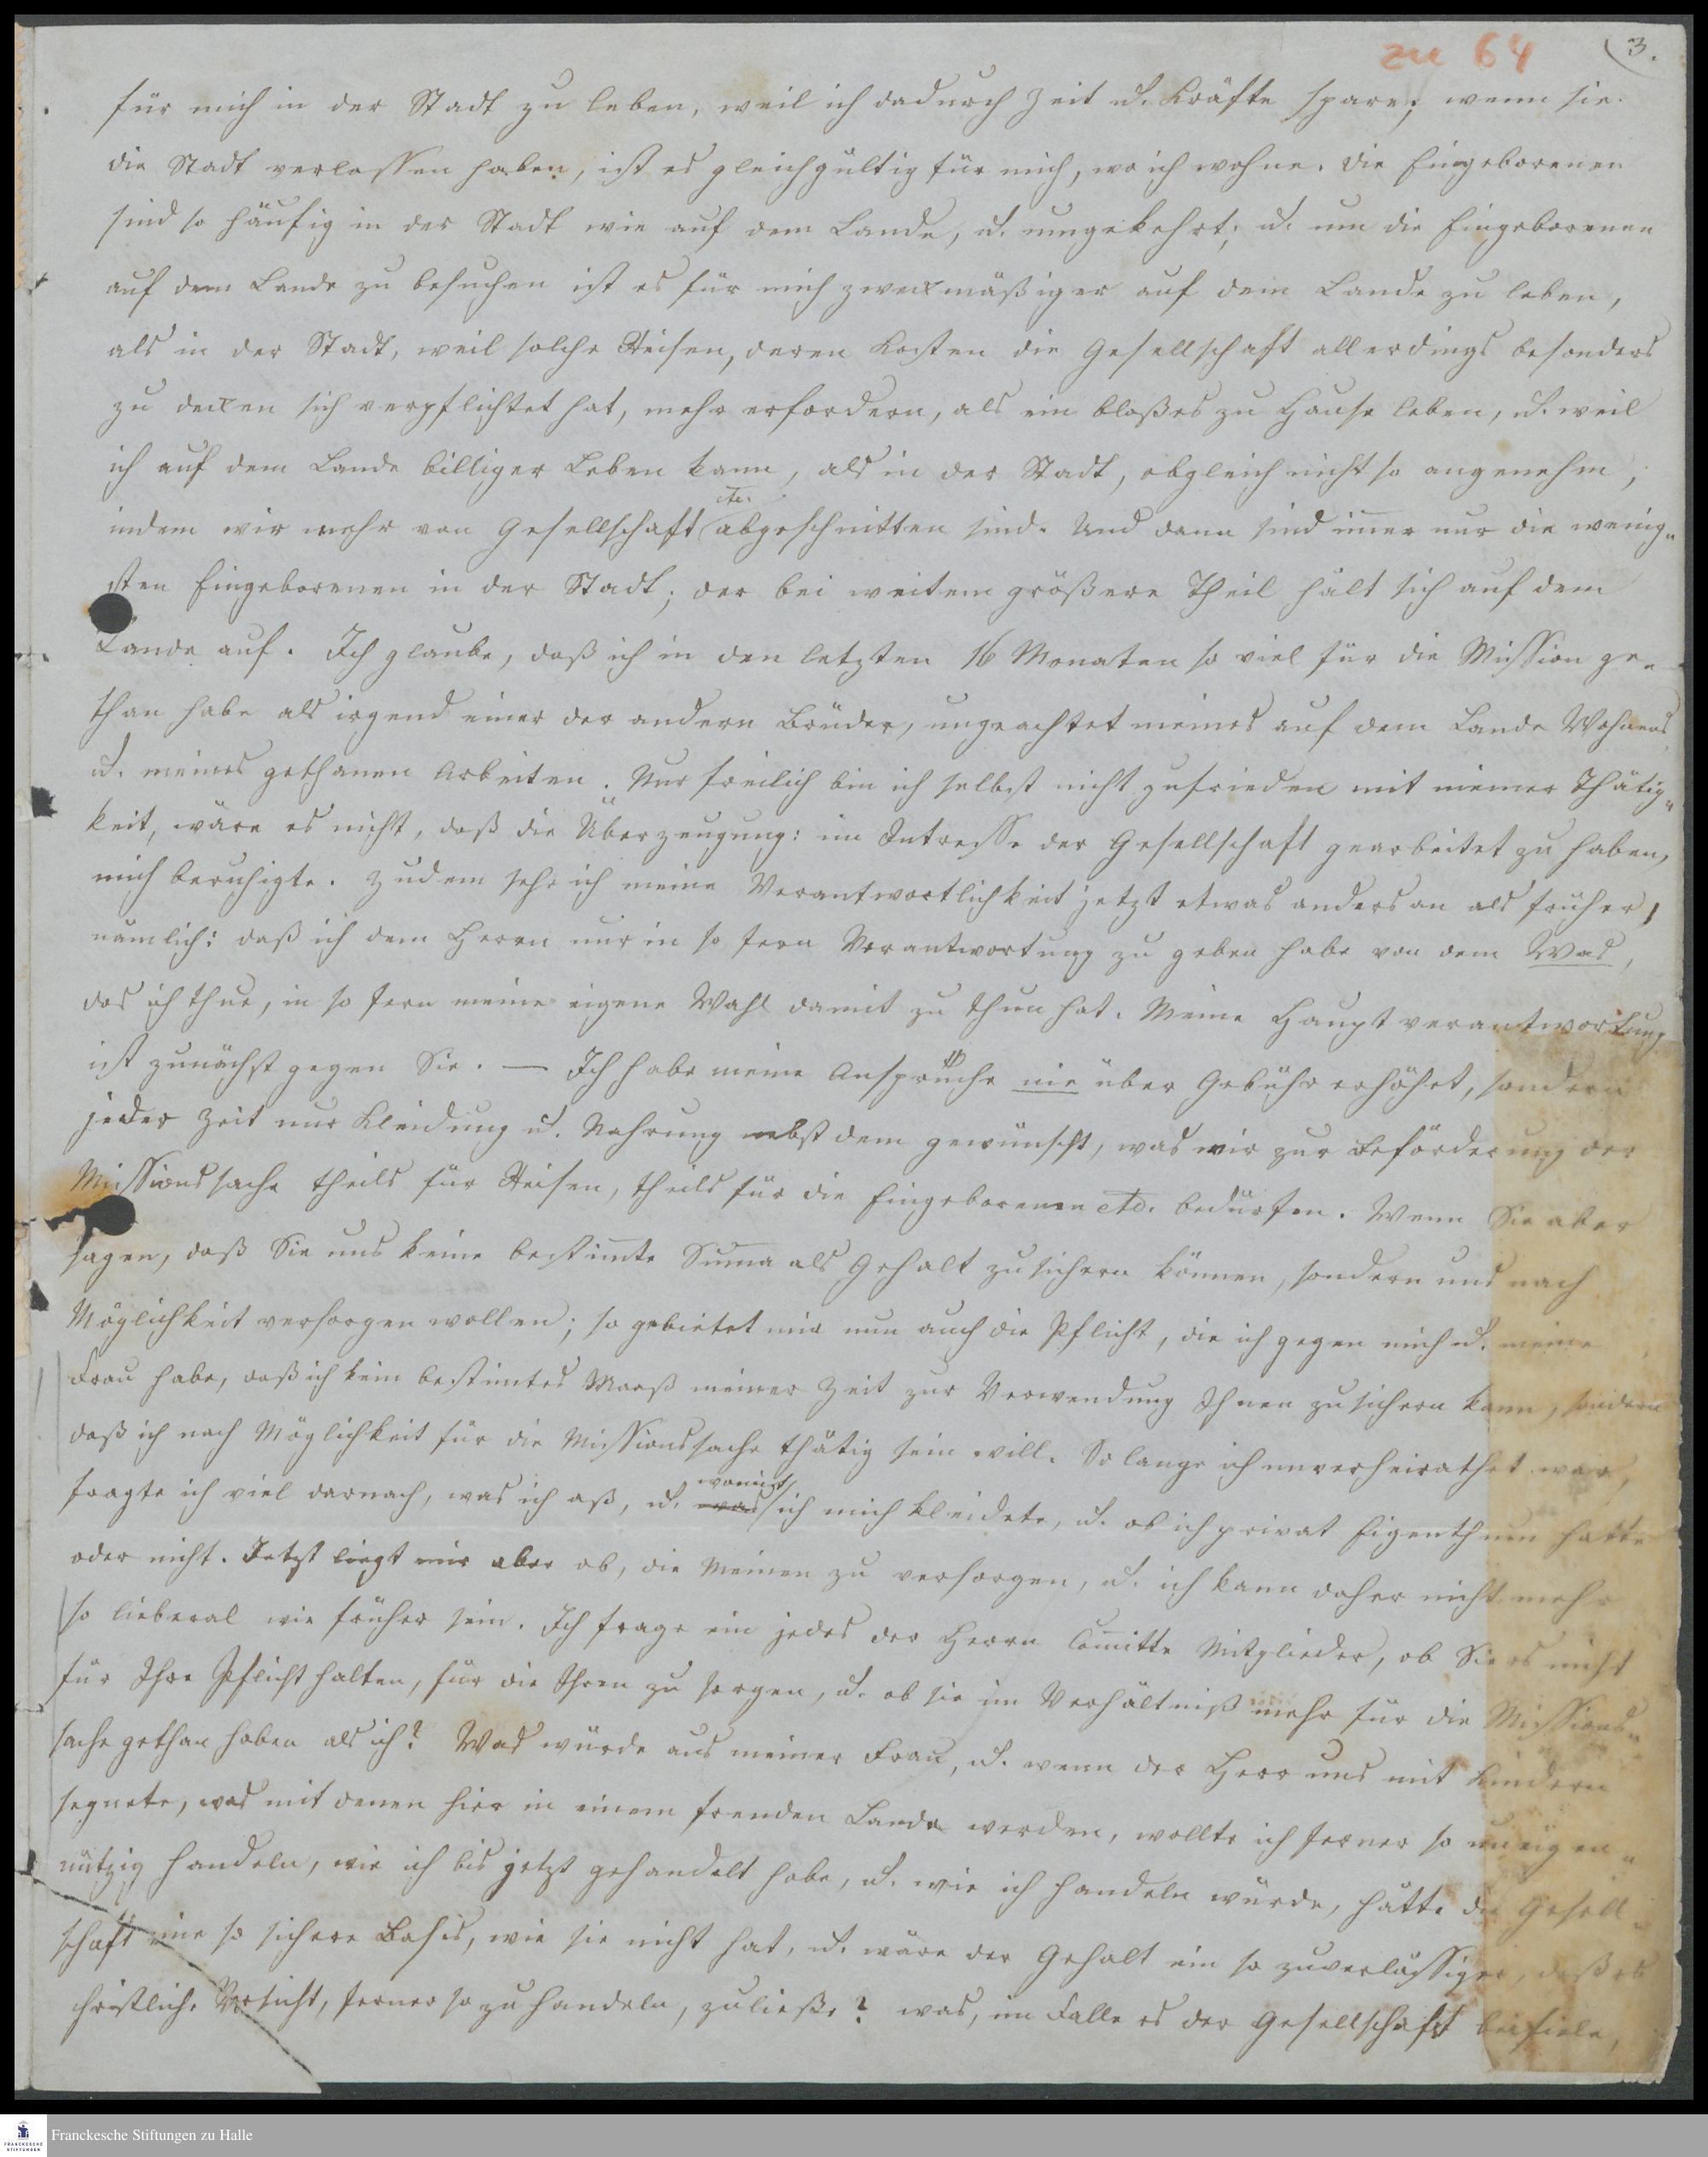 zu 64
3.
für mich in der Stadt zu leben, weil ich dadurch Zeit u. Kräfte spare; wenn sie
die Stadt verlassen haben, ist es gleichgültig für mich, wo ich wohne. Die Eingeborenen
sind so häufig in der Stadt wie auf dem Lande, u. umgekehrt; u. um die Eingeborenen
auf dem Lande zu besuchen ist es für mich zweckmäßiger auf dem Lande zu leben,
als in der Stadt, weil solche Reisen, deren Kosten die Gesellschaft allerdings besonders
zu decken sich verpflichtet hat, mehr erfordern, als ein bloßes zu Hause leben, u. weil
ich auf dem Lande billiger Leben kann, als in der Stadt, obgleich nicht so angenehm,
indem wir mehr von Gesellschaft etc. abgeschnitten sind. Und dann sind im̅er nur die wenig„
sten Eingeborenen in der Stadt; der bei weitem größere Theil hält sich auf dem
Lande auf. Ich glaube, daß ich in den letzten 16 Monaten so viel für die Mission ge„
than habe als irgend einer der andern Brüder, ungeachtet meines auf dem Lande Wohnens
u. meines gethanen Arbeiten. Nur freilich bin ich selbst nicht zufrieden mit meiner Thätig„
keit, wäre es nicht, daß die Überzeugung: im Intresse der Gesellschaft gearbeitet zu haben,
mich beruhigte. Zudem sehe ich meine Verantwortlichkeit jetzt etwas anders an als früher,
nämlich: daß ich dem Herrn nur in so fern Verantwortung zu geben habe von dem Was,
das ich thue, in so fern meine eigene Wahl damit zu thun hat. Meine Hauptverantwortung
ist zunächst gegen Sie. — Ich habe meine Ansprüche nie über Gebühr erhöhet, sondern
jeder Zeit nur Kleidung u. Nahrung nebst dem gewünscht, was wir zur Beförderung der
Missionssache theils für Reisen, theils für die Eingeborenen etc. bedürfen. Wenn Sie aber
sagen, daß Sie uns keine bestim̅te Sum̅a als Gehalt zusichern können, sondern uns nach
Möglichkeit versorgen wollen; so gebietet mir nun auch die Pflicht, die ich gegen mich u. meine
Frau habe, daß ich kein bestimtes Maaß meiner Zeit zur Verwendung Ihnen zusichern kann, sondern
daß ich nach Möglichkeit für die Missionssache thätig sein will. So lange ich unverheirathet war,
fragte ich viel darnach, was ich aß, u. was womit ich mich kleidete, u. ob ich privat Eigenthum hatte
oder nicht. Jetzt liegt mir aber ob, die Meinen zu versorgen, u. ich kann daher nicht mehr
so lieberal wie früher sein. Ich frage ein jedes der Herrn Com̅itte Mitglieder, ob Sie es nicht
für Ihre Pflicht halten, für die Ihren zu sorgen, u. ob sie im Verhältniß mehr für die Missions„
sache gethan haben als ich? Was würde aus meiner Frau, u. wenn der Herr uns mit Kindern
segnete, was mit denen hier in einem fremden Lande werden, wollte ich ferner so uneigen„
nützig handeln, wie ich bis jetzt gehandelt habe, u. wie ich handeln würde, hätte die Gesell„
schaft eine so sichere Basis, wie sie nicht hat, u. wäre der Gehalt ein so zuverlässiger, daß es
christliche Vorsicht, ferner so zu handeln, zuließe? was, im Falle es der Gesellschaft beifiele,
Franckesche Stiftungen zu Halle